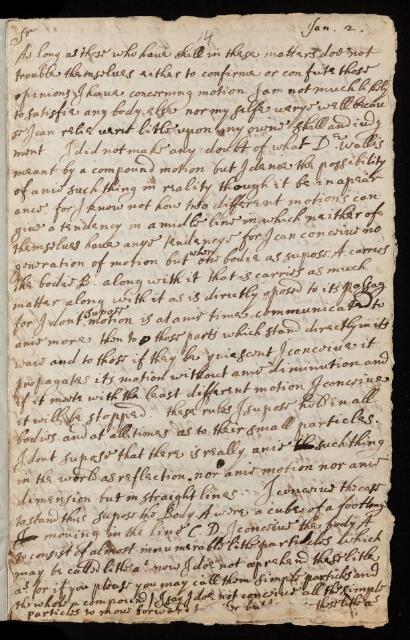 14
Sr Jan. 2.
As long as those who have skill in these matters doe not
trouble themselves either to confirme or confute those
opinions I have concerning motion I am not much likely
to satisfie any body else nor my selfe verye well becau
se I can relie verit litle upon my owne skill and iudg
ment I did not make any doubt of what Dr Wallis
meant by a compound motion but I denie the possibility
of anie such thing in reality though it be in apear
ance for I know not how two different motions can
give a tendency in a midle line in which neither of
themselves have anye tendencye for I can conceive no
generation of motion but when one bodie as supose A. carries
the bodie B. along with it that is carries as much
matter along with it as is directly oposed to its passag
for I dont supose motion is at anie time communicated to
anie more then to those parts which stand directly in its
waie and to those if they be quiescent I conceive it
propagates its motion without anie diminution and
if it meets with the least different motion I conceive
it will be stopped. these rules I supose hold in all
bodies and at all times as to their small particles.
I dont supose that there is really anie such thing
in the world as reflection. nor anie motion nor anie
dimension but in straight lines. I conceive the case
to stand thus supose the Body A were a cube of a foot long
moving in the line C D. I conceive the body A
to consist of almost innumerable litle particles which
may be called litle a's now I doe not aprehend these litle
a's or if you please you may call them simple particles and
the whole a compound I say I doe not conceive all the simple
particles to move forwards or be these litle a